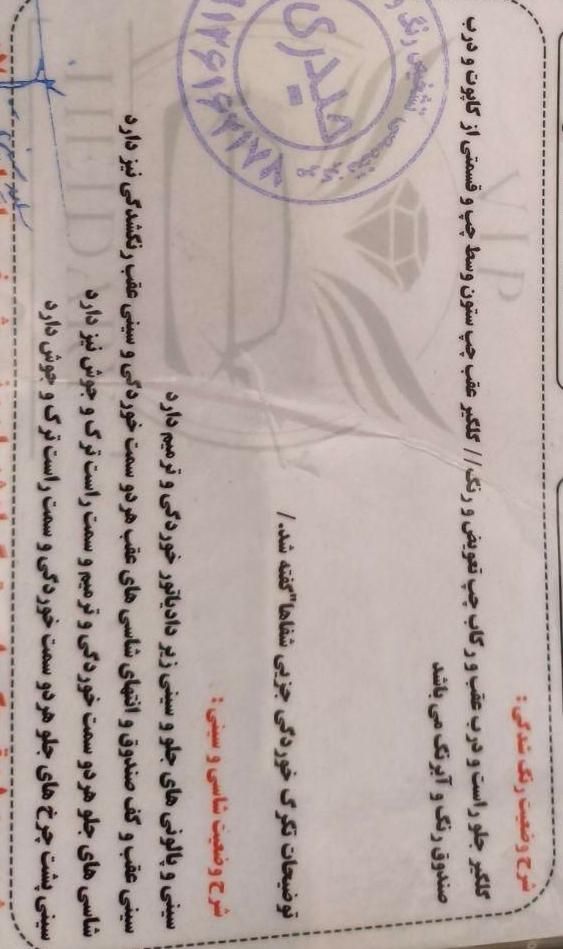 شرح وضعیت رنگ شدگی :
گلگیر جلو راست و درب عقب و رکاب چپ تعویض و رنگ // گلگیر عقب چپ ستون وسط چپ و قسمتی از کاپوت و درب
صندوق رنگ و آبرنگ می باشد
توضیحات تگرگ خوردگی جزیی شفاها" گفته شد. /
شرح وضعیت شاسی و سینی :
سینی و بالونی های جلو و سینی زیر دادیاتور خوردگی و ترمیم دارد
سینی عقب و کف صندوق و انتهای شاسی های عقب هر دو سمت خوردگی و سینی عقب رنگشدگی نیز دارد
شاسی های جلو هر دو سمت خوردگی و ترمیم و سمت راست ترک و جوش نیز دارد
سینی پشت چرخ های جلو هر دو سمت خوردگی و سمت راست ترک و جوش دارد
VIP
حیدری